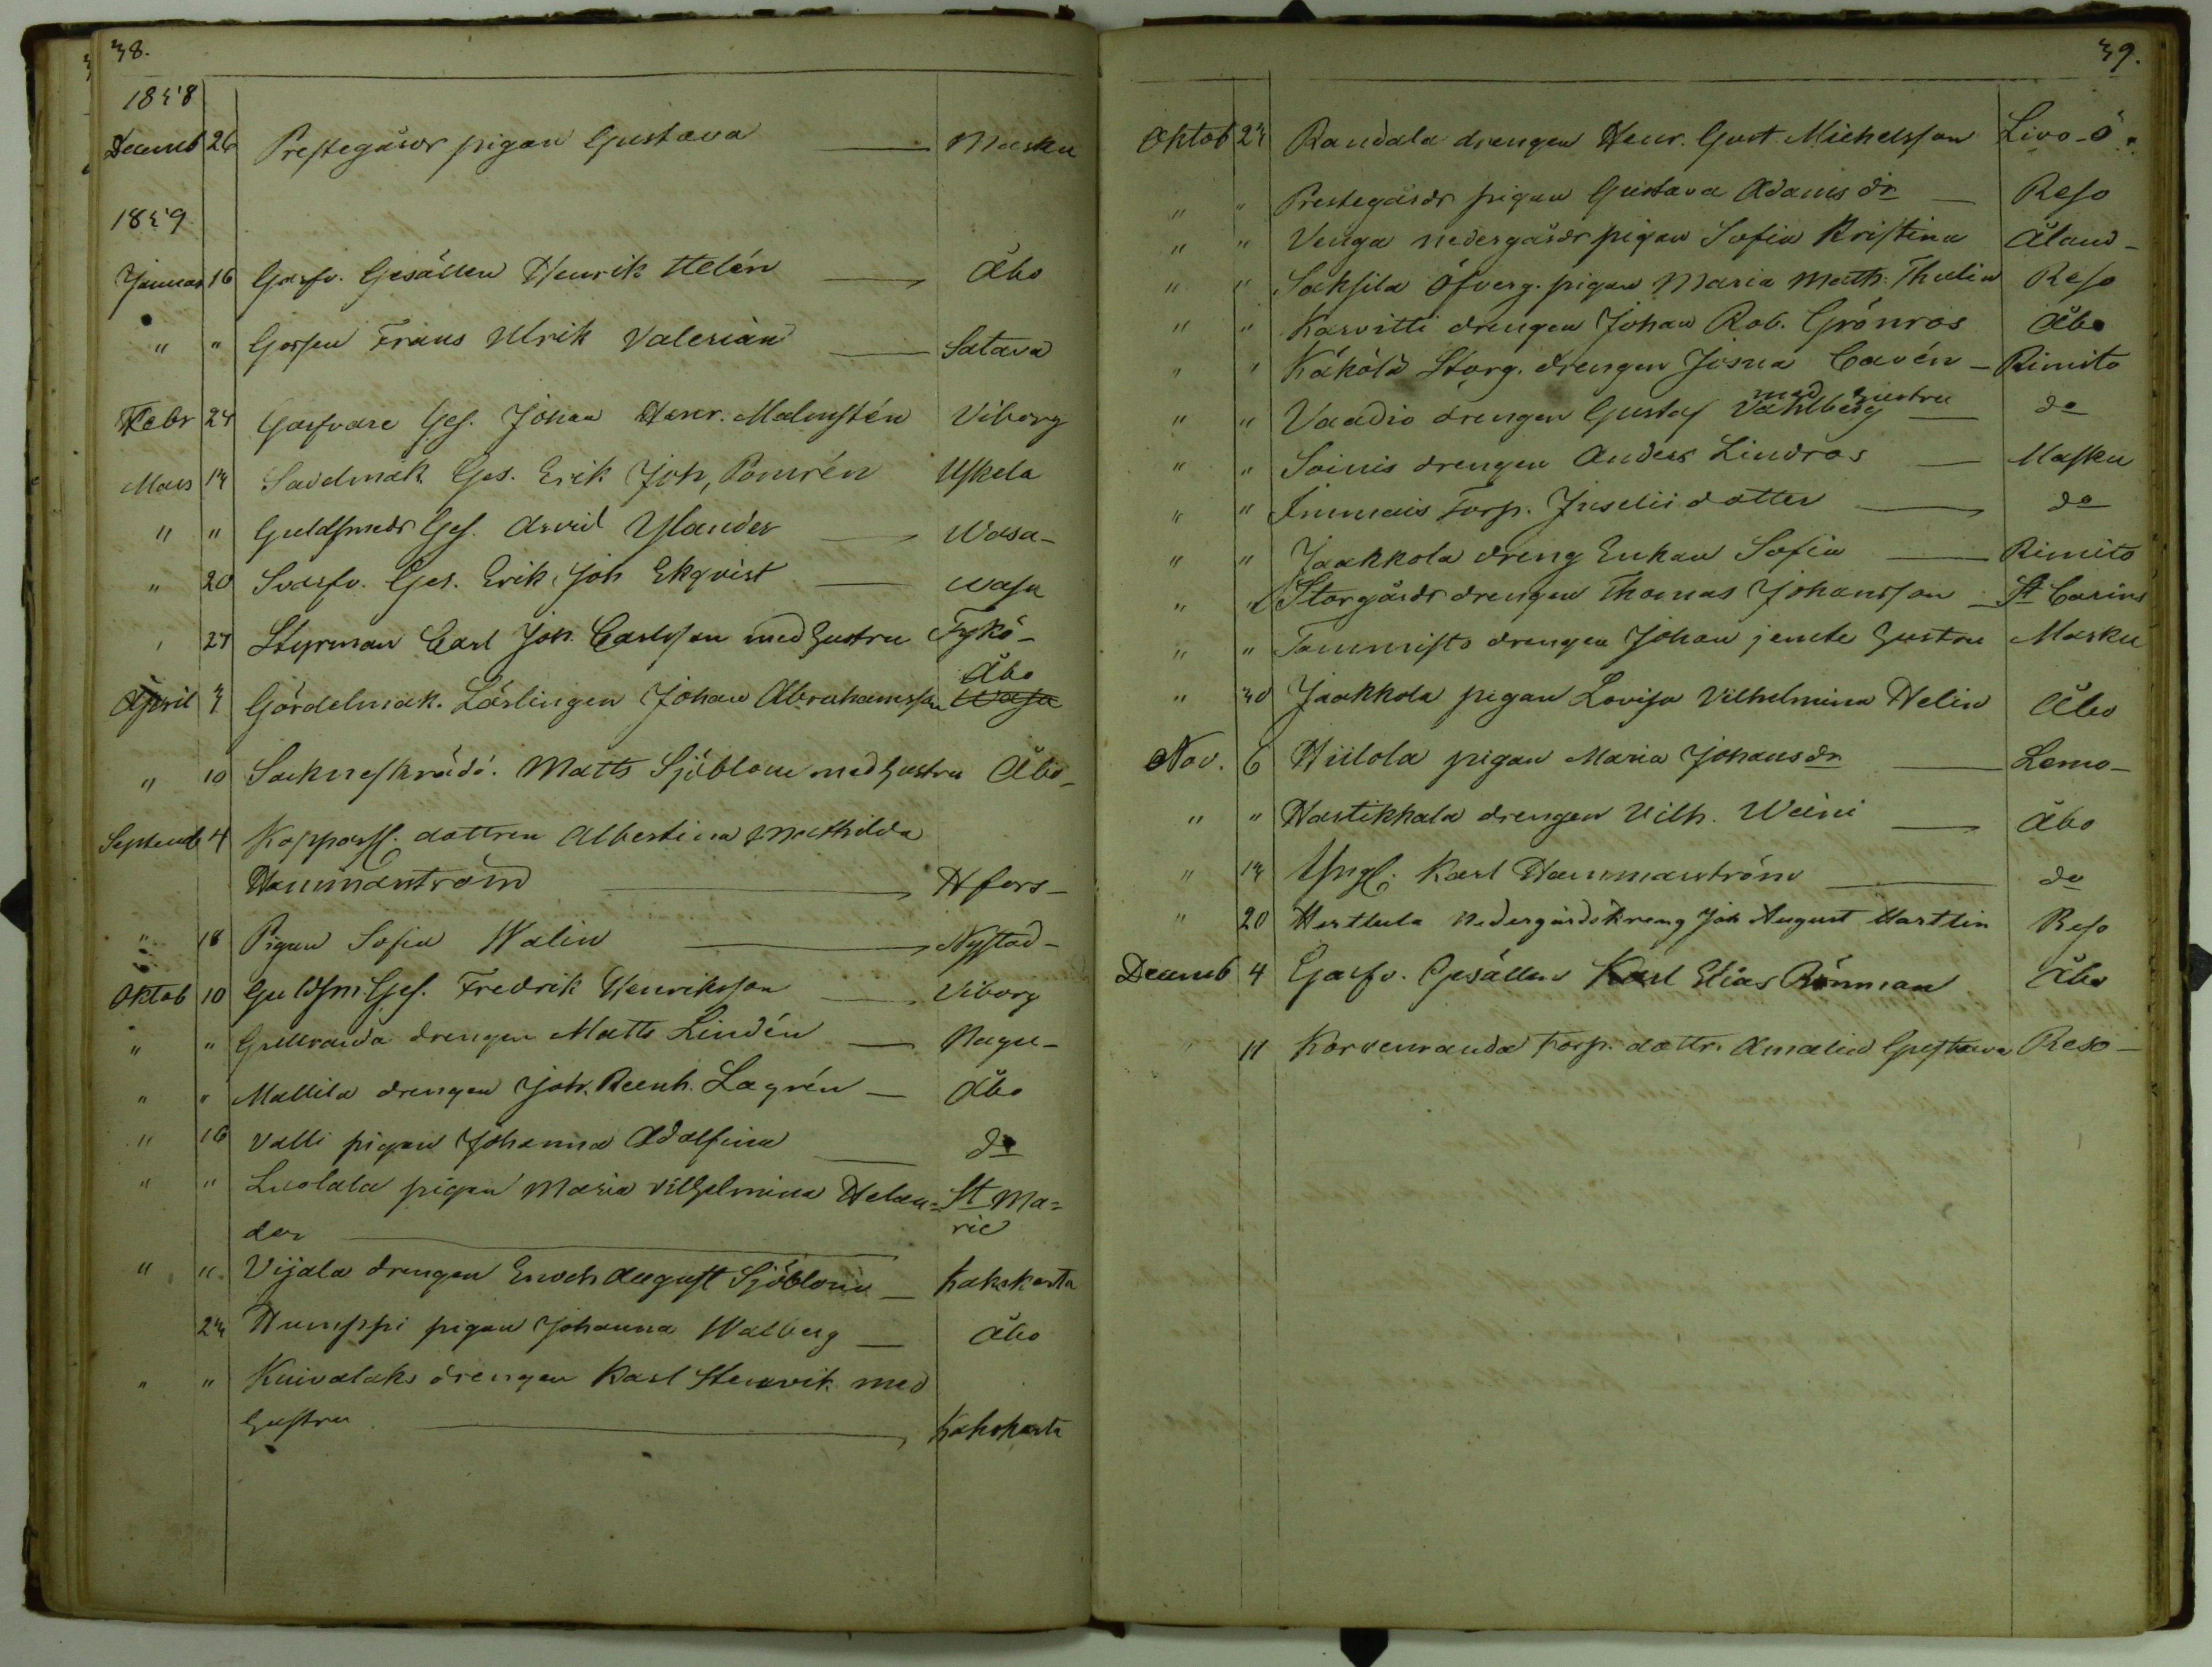 38.
1858
Decemb 26 Prestegårds pigan Gustava — Masku
1859
Januar 16 Garfv. Gesällen Henrik Helén — Åbo
" " Gossen Frans Ulrik Valerian — Satava
Febr 24 Garfvare Ges. Johan Henr. Malmstén Viborg
Mars 13 Sadelmak. Ges. Erik Joh, Pomrén Uskela
" " Guldsmeds Ges. Arvid Ylander — Wasa-
" 20 Svarfv. Ges. Erik Joh Ekqvist — Wasa
" 27 Styrman Carl Joh. Carlsson med hustru Tykö-
Åbo
April 3 Gördelmak. Lärlingen Johan Abrahamsson Wasa
" 10 Socknesskrädd. Matts Sjöblom med hustru Åbo-
Septemb 4 Kopparsl. dottren Albertina Mathilda
Hammarström — Hfors-
" 18 Pigan Sofia Walin — Nystad-
Oktob 10 Guldsm. Ges. Fredrik Henriksson — Viborg
" " Gullranda drengen Matts Lindén — Nagu-
" " Mattila drengen Joh. Reenh. Lagrén — Åbo
" 16 Valli pigan Johanna Adolfina — do
" " Luolala pigan Maria Vilhelmina Helan= St Ma=
der — rie
" " Vijala drengen Enoch August Sjöblom — Kakskerta
23 Humppi pigan Johanna Walberg — Åbo
" " Kuivalaks drengen Karl Stenvik med
hustru — Kakskerta
39.
Oktob 23 Randala drengen Henr. Gust. Michelsson Livo-ö.
" " Prestegårds pigan Gustava Adams dr — Reso
" " Venga nedergårds pigan Sofia Kristina Åland-
" " Saksila Öfverg. pigan Maria Math. Thulin Reso
" " Karvitti drengen Johan Rob. Grönros Åbo
" " Käkölä Storg. drengen Josua Cavén — Rimito
med hustru
" " Vaadio drengen Gustaf Vahlberg — do
" " Soinis drengen Anders Lindros — Masku
" " Immais Torp. Juselii dotter — do
" " Jaakkola dreng Enkan Sofia — Rimito
" " Storgårds drengen Thomas Johansson — St Carins
" " Tammisto drengen Johan jemte hustru Masku
" 30 Jaakkola pigan Lovisa Vilhelmina Helin Åbo
Nov. 6 Hiilola pigan Maria Johansdr — Lemo-
" " Hastikkala drengen Vilh. Weini — Åbo
" 13 Yngl. Karl Hammarström — do
" 20 Herttula Nedergårds dreng Joh August Martlin Reso
Decemb 4 Garfv. Gesällen Karl Elias Rönman Åbo
" 11 Korvenranda Torp. dottr. Amalia Gustava Reso-